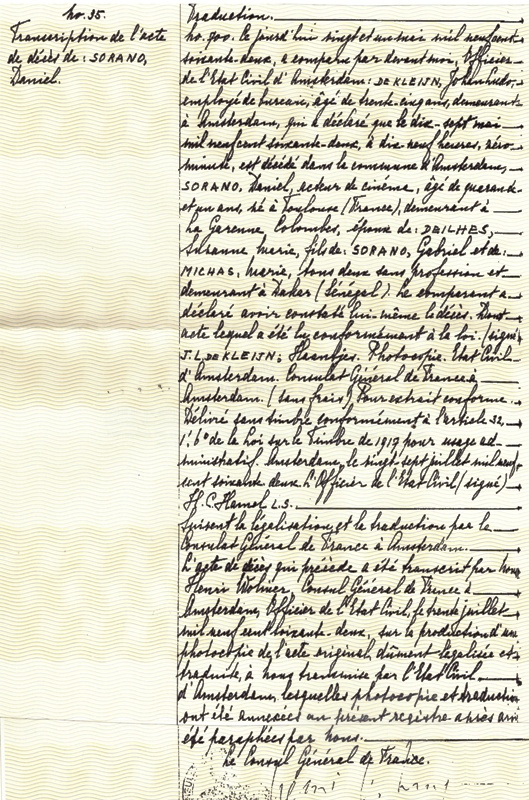 no. 35.
Transcription de l'acte
de décès de: SORANO,
Daniel.
Traduction.
no. 900. Le jourd'hui vingt et un mai mil neufcent
soixante-deux, a comparu par devant moi, Officier
de l'Etat Civil d'Amsterdam: DE KLEIJN, Johan Ludo,
employé de bureau, âgé de trente-cinq ans, demeurant
à Amsterdam, qui a déclaré que le dix-sept mai
mil neufcent soixante-deux, à dix neuf heures, zéro
minute, est décédé dans la commune d'Amsterdam,
SORANO, Daniel, acteur de cinéma, âgé de quarante
et un ans, né à Toulouse (France), demeurant à
La Garenne, Colombes, époux de: DEILHES,
Suzanne Marie, fils de: SORANO, Gabriel et de:
MICHAS, Marie, tous deux sans profession et
demeurant à Dakar (Sénégal). Le comparant a
déclaré avoir constaté lui-même le décès. Dont
acte lequel a été lu conformément à la loi. (signé
J.L. DE KLEIJN; Haantjes. Photocopie. Etat Civil
d'Amsterdam. Consulat Général de France à
Amsterdam. (sans frais) Pour extrait conforme.
Délivré sans timbre conformément à l'article 32,
1, 6° de la Loi sur le Timbre de 1917 pour usage ad-
ministratif. Amsterdam, le vingt sept juillet mil neuf
cent soixante deux. L'Officier de l'Etat Civil (signé)
H.C. Hamel L.S.
Suivent la légalisation et la traduction par le
Consulat Général de France à Amsterdam.
L'acte de décès qui précède a été transcrit par nous
Henri Wolmer, Consul Général de France à
Amsterdam, Officier de l'Etat Civil, le trente juillet
mil neuf cent soixante-deux, sur la production d'une
photocopie de l'acte original dûment légalisée et
traduite, à nous transmise par l'Etat Civil
d'Amsterdam, lesquelles photocopie et traduction
ont été annexées au présent registre après avoir
été paraphées par nous.
Le Consul Général de France.